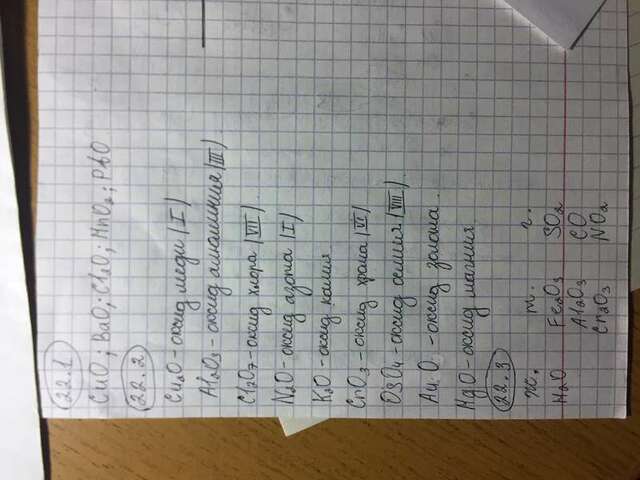 22.1
CuO; BaO; Cl2O; MnO2; PbO
22.2
Cu2O - оксид меди (I)
Al2O3 - оксид алюминия (III)
Cl2O7 - оксид хлора (VII).
N2O - оксид азота (I)
K2O - оксид калия
CrO3 - оксид хрома (VI)
OsO4 - оксид осмия (VIII).
Au O - оксид золота.
MgO - оксид магния
22.3
ж. т. г.
H2O Fe2O3 SO2
Al2O3 CO
Cr2O3 NO2